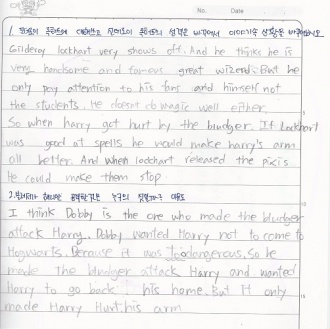 No. Date
Gilderoy lockhart very shows off. And he thinks he is
very handsome and famous great wizerd. But he
only pay attention to his fans and himself not
the students. He doesnt do magic wall either.
So when harry got hurt by the bludger. If Lockhart
was good at spells he would make harry's arm
all better. And when lockhart released the pixis
He could make them stop
I think Dobby is the one who made the bludger
attack Harry. Dobby wanted Harry not to come to
Hogwarts. Because it was too dangerous. So he
made The bludger attack Harry and wanted
Harry to go back his home. But It only
made Harry Hurt his arm